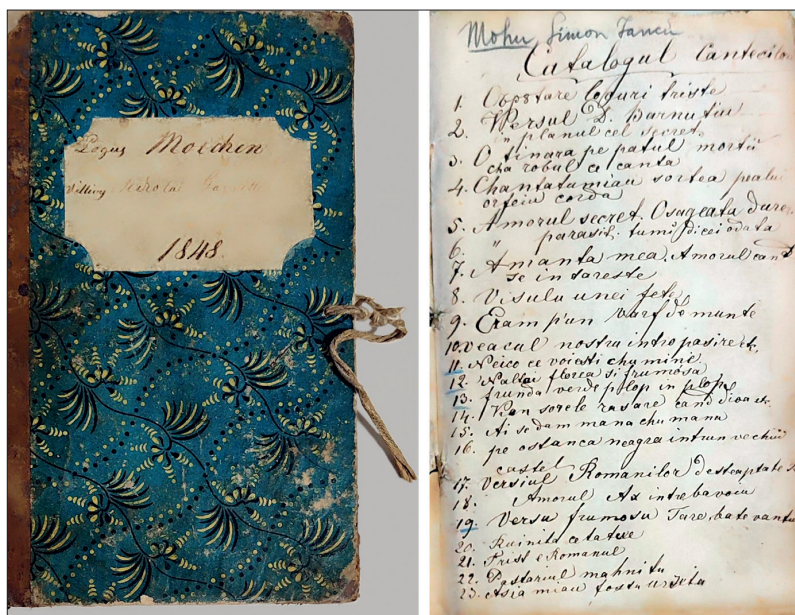 Moichen
1848.
Mohu, Simon Jancu
Catalogul Cantecilor
1. triste
2. Versul D. Barnutiu
in planul cel secret
3. O tinara pe patul mortii
cha robul a canta
4. Chantatumiau sortea
orfeiu corda
5. Amorul secret. Osageata
6. " parasit. tumi dicei odata
7. Amanta mea. Amorul cand
se intareste
8. Visulu unei fete
9. Eram p'un varf de munte
10. veacul nostru intro
11. Neico ce voiesti chu mine
12. florea si frumosa
13. frunda verde plop in plop
14. sorele rasare cand
15. Ai se dam mana chu mana
16. pe ostanca neagra intrun vechiu
castel
17. Versiul Romanilor desteaptate
18. Amorul intreba voiu
19. Versu frumosu Tare bate vantu
20. Ruinita cetatue
21. Trist e Romanul
22. Pastoriul mahnitu
23. Asia miau fostu ursita